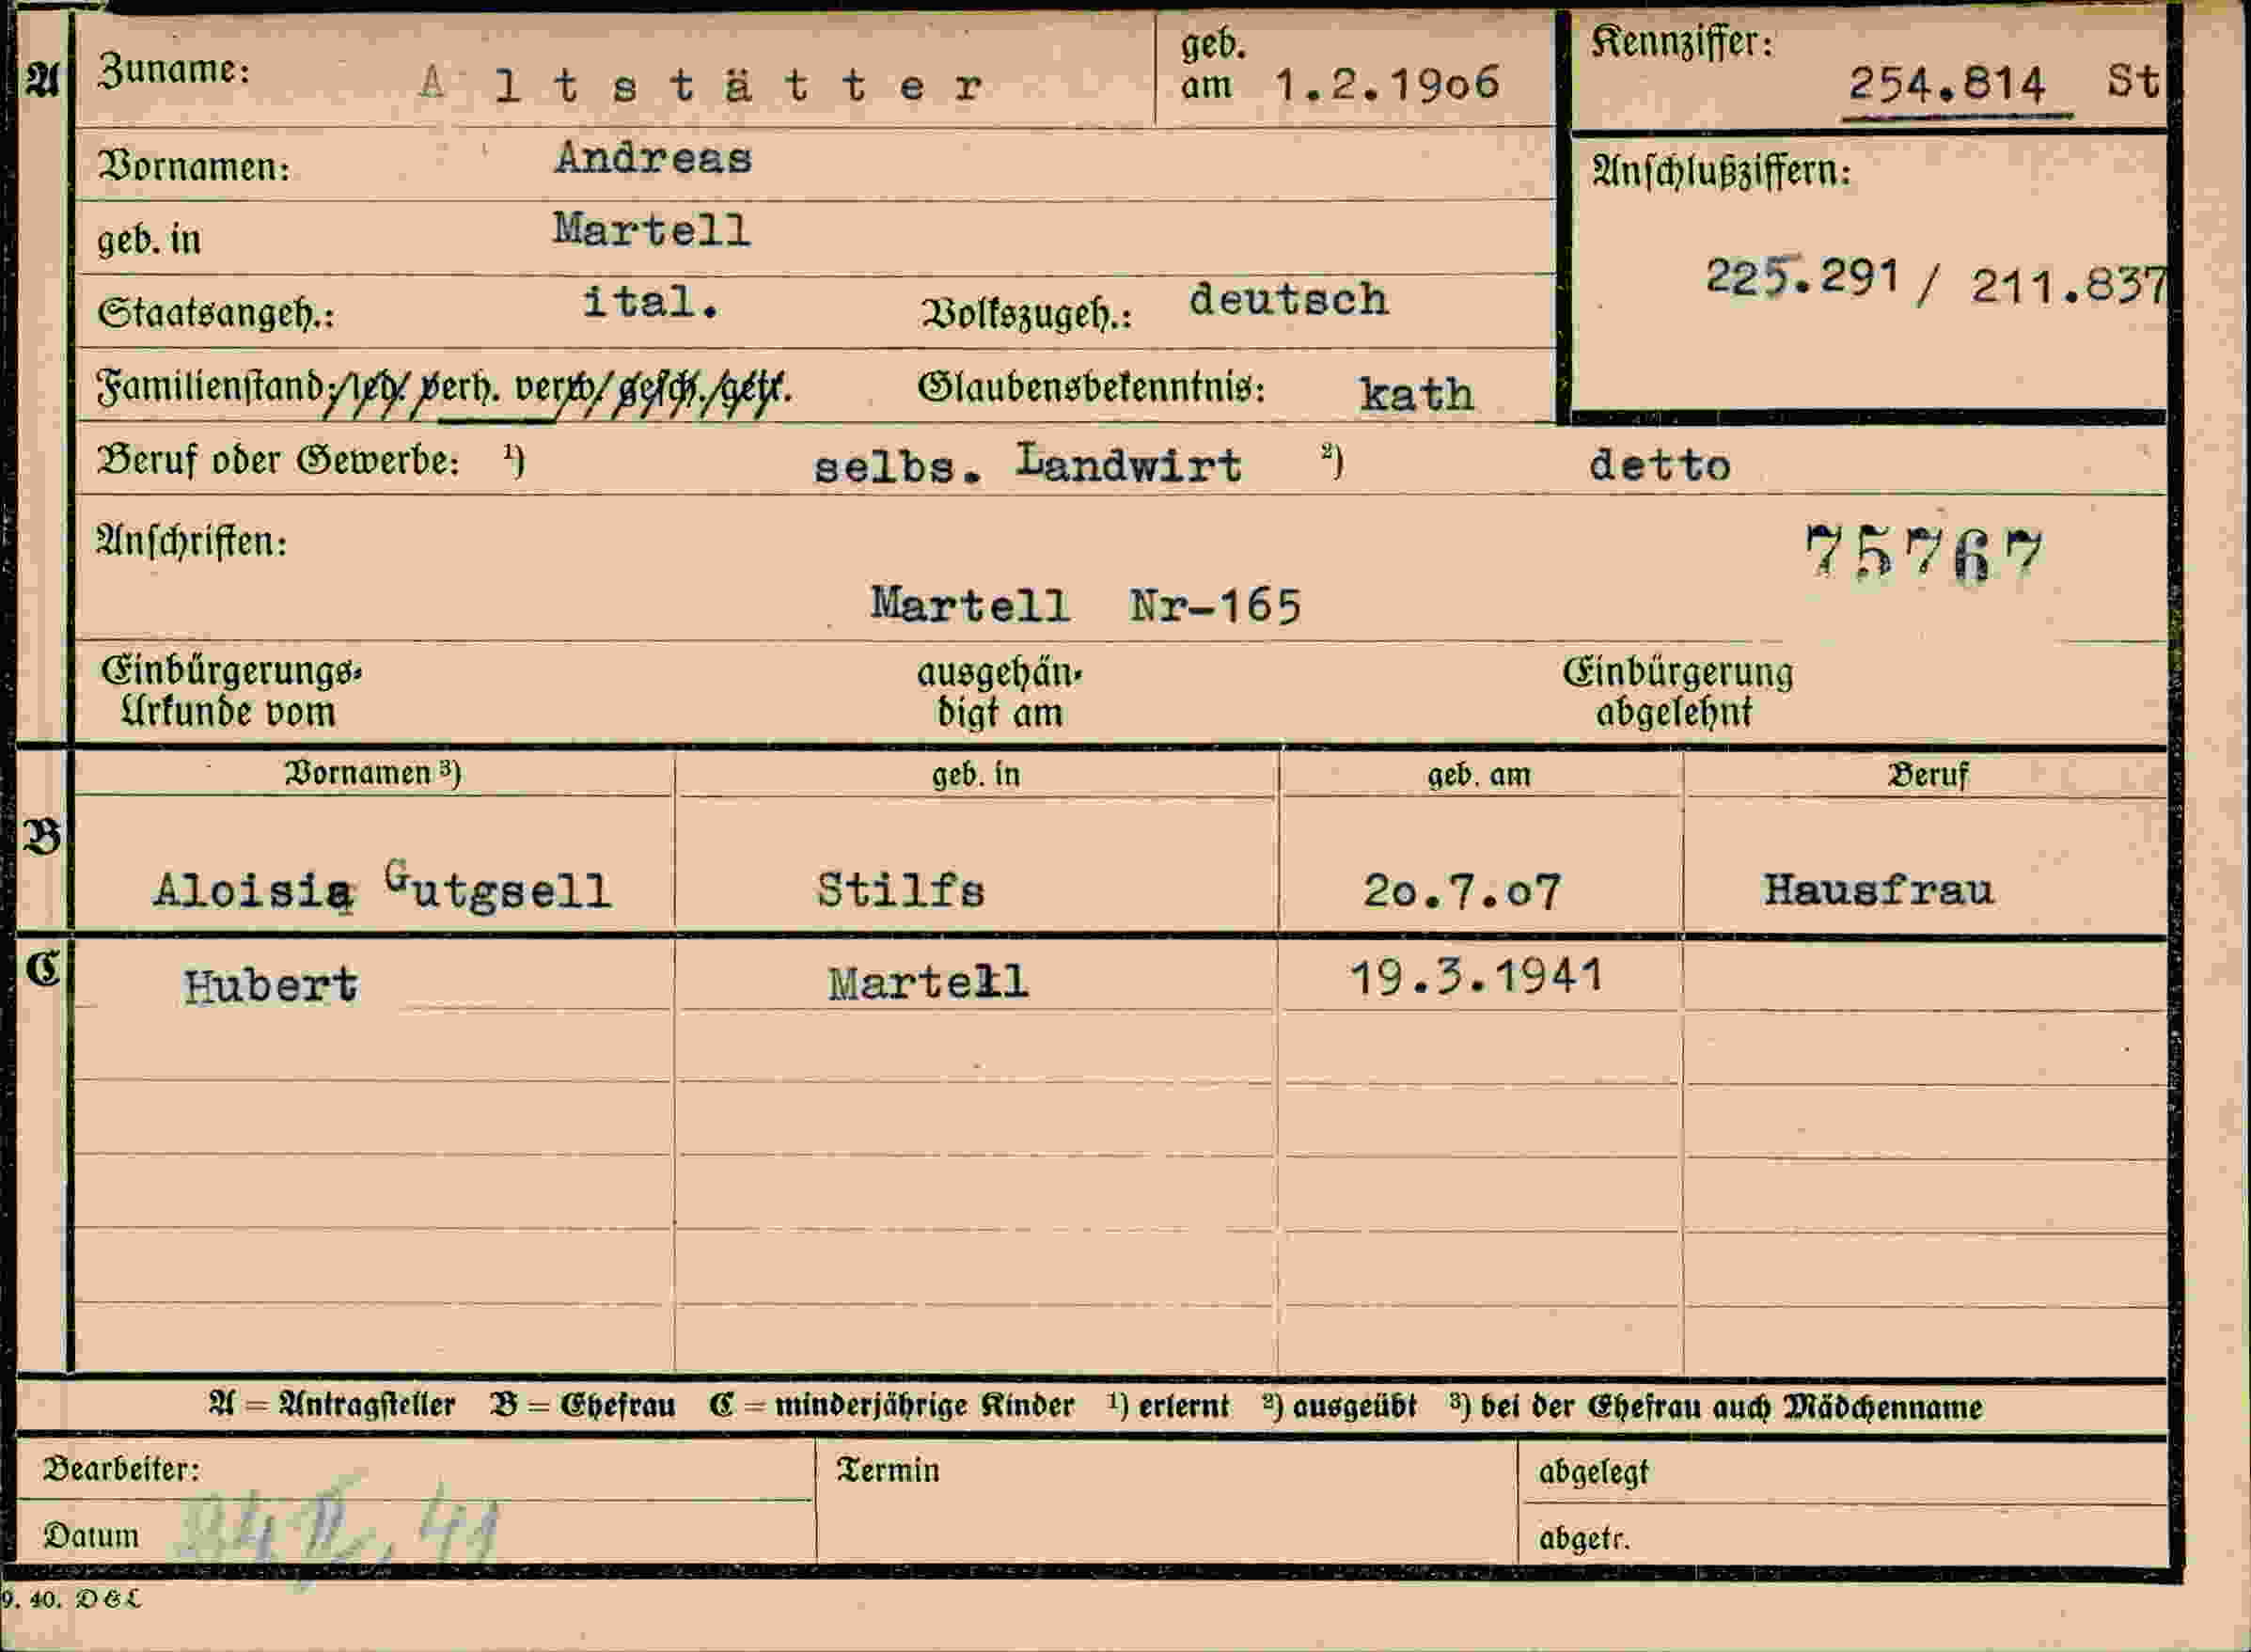 A Zuname: A l t s t ä t t e r geb. am 1.2.19o6 Kennziffer: 254.814 St
Vornamen: Andreas Anschlußziffern:
geb. in Martell
225.291 / 211.837
Staatsangeh.: ital. Volkszugeh.: deutsch
Familienstand: led. verh. verw. gesch. getr. Glaubensbekenntnis: kath
Beruf oder Gewerbe: ¹) selbs. Landwirt ²) detto
Anschriften: 75767
Martell Nr-165
Einbürgerungs- ausgehän- Einbürgerung
Urkunde vom digt am abgelehnt
Vornamen ³) geb. in geb. am Beruf
B
Aloisia Gutgsell Stilfs 2o.7.o7 Hausfrau
C Hubert Martell 19.3.1941
A = Antragsteller B = Ehefrau C = minderjährige Kinder ¹) erlernt ²) ausgeübt ³) bei der Ehefrau auch Mädchenname
Bearbeiter: Termin abgelegt
Datum 41 abgetr.
9. 40. D&L